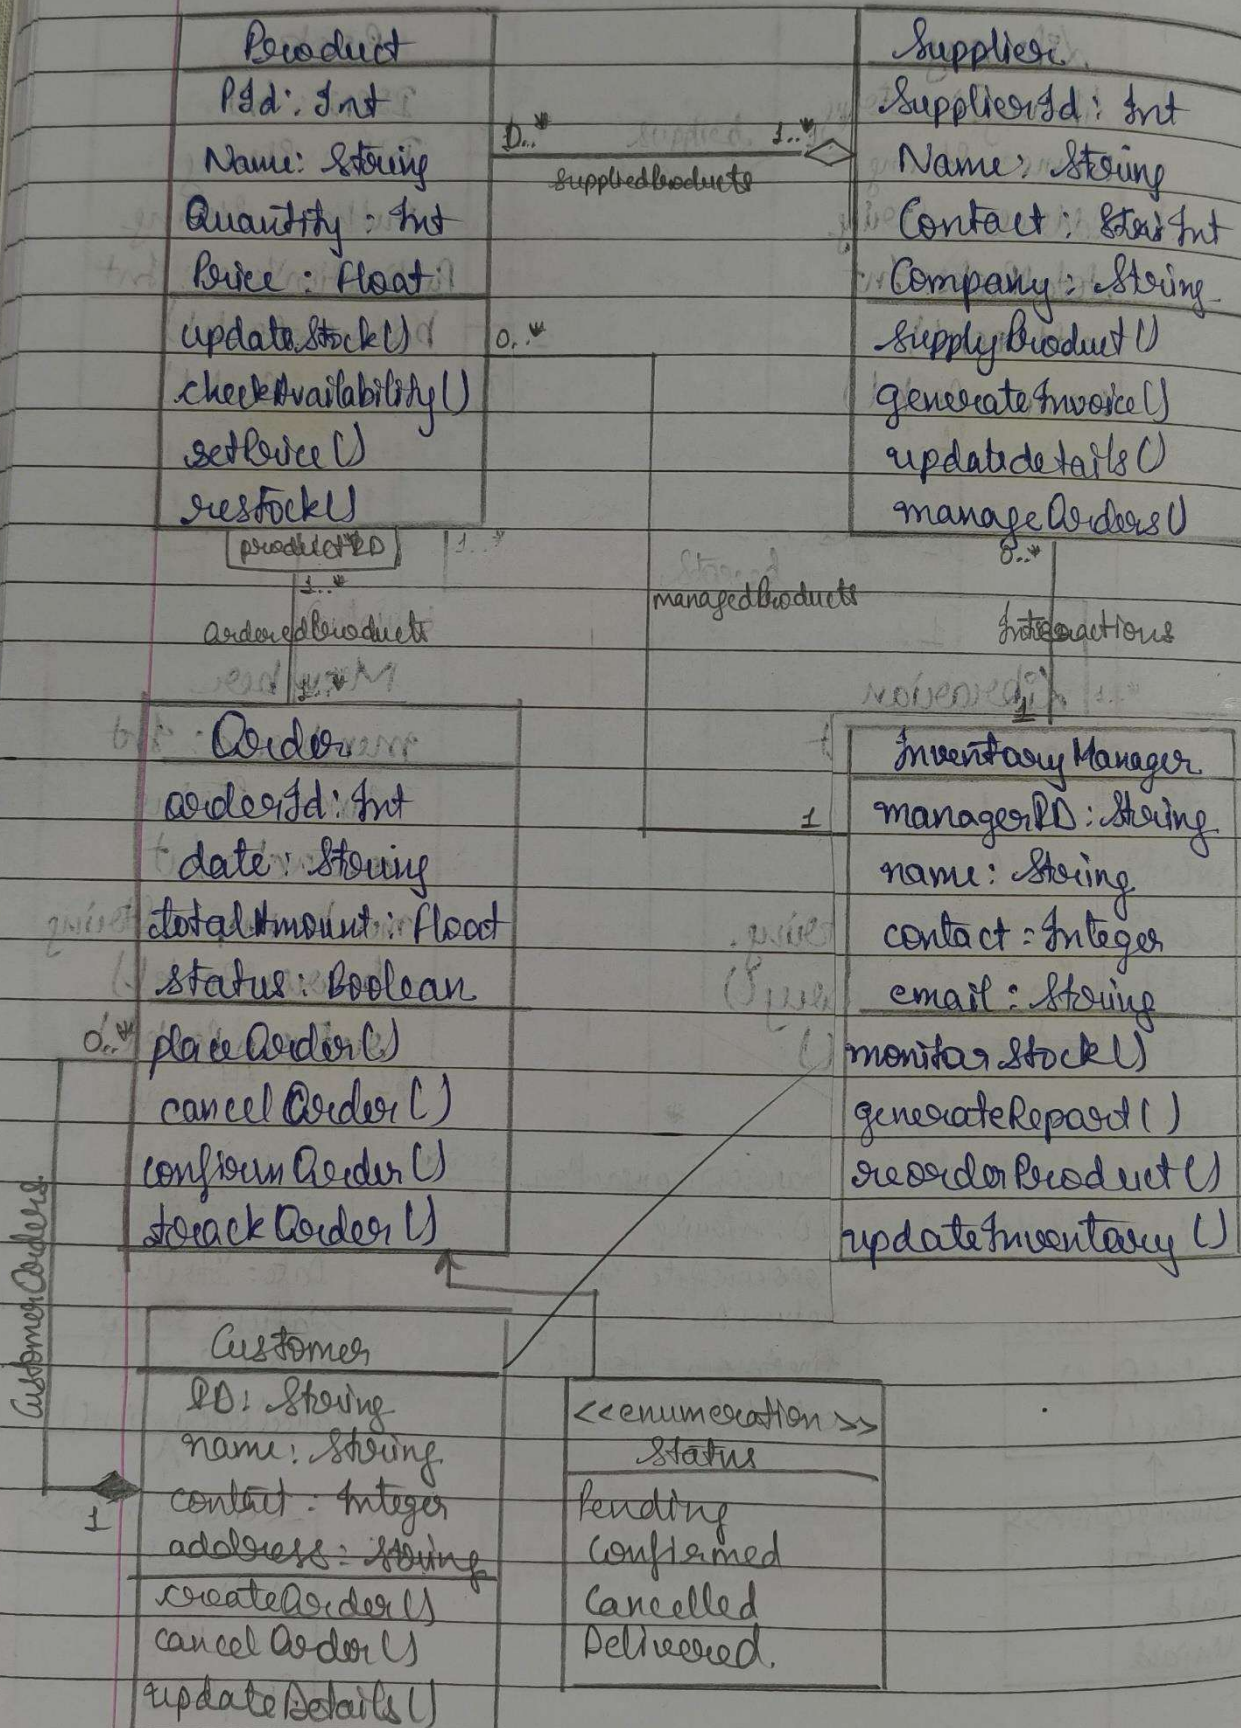 Product
PId: Int
Name: String
Quantity: Int
Price: Float
updateStock()
checkAvailability()
setPrice()
restock()
productID
0..*
1..*
suppliedProducts
Supplier
SupplierId: Int
Name: String
Contact: Int
Company: String
supplyProduct()
generateInvoice()
updatedetails()
manageOrders()
0..*
managedProducts
1
0..*
Interactions
1
1..*
1..*
orderedProducts
1..*
Order
orderId: Int
date: String
totalAmount: Float
status: Boolean
placeOrder()
cancelOrder()
confirmOrder()
trackOrder()
InventoryManager
managerID: String
name: String
contact: Integer
email: String
monitorStock()
generateReport()
reorderProduct()
updateInventory()
0..*
CustomerOrders
1
Customer
ID: String
name: String
contact: Integer
address: String
createOrder()
cancelOrder()
updateDetails()
<<enumeration>>
Status
Pending
Confirmed
Cancelled
Delivered.